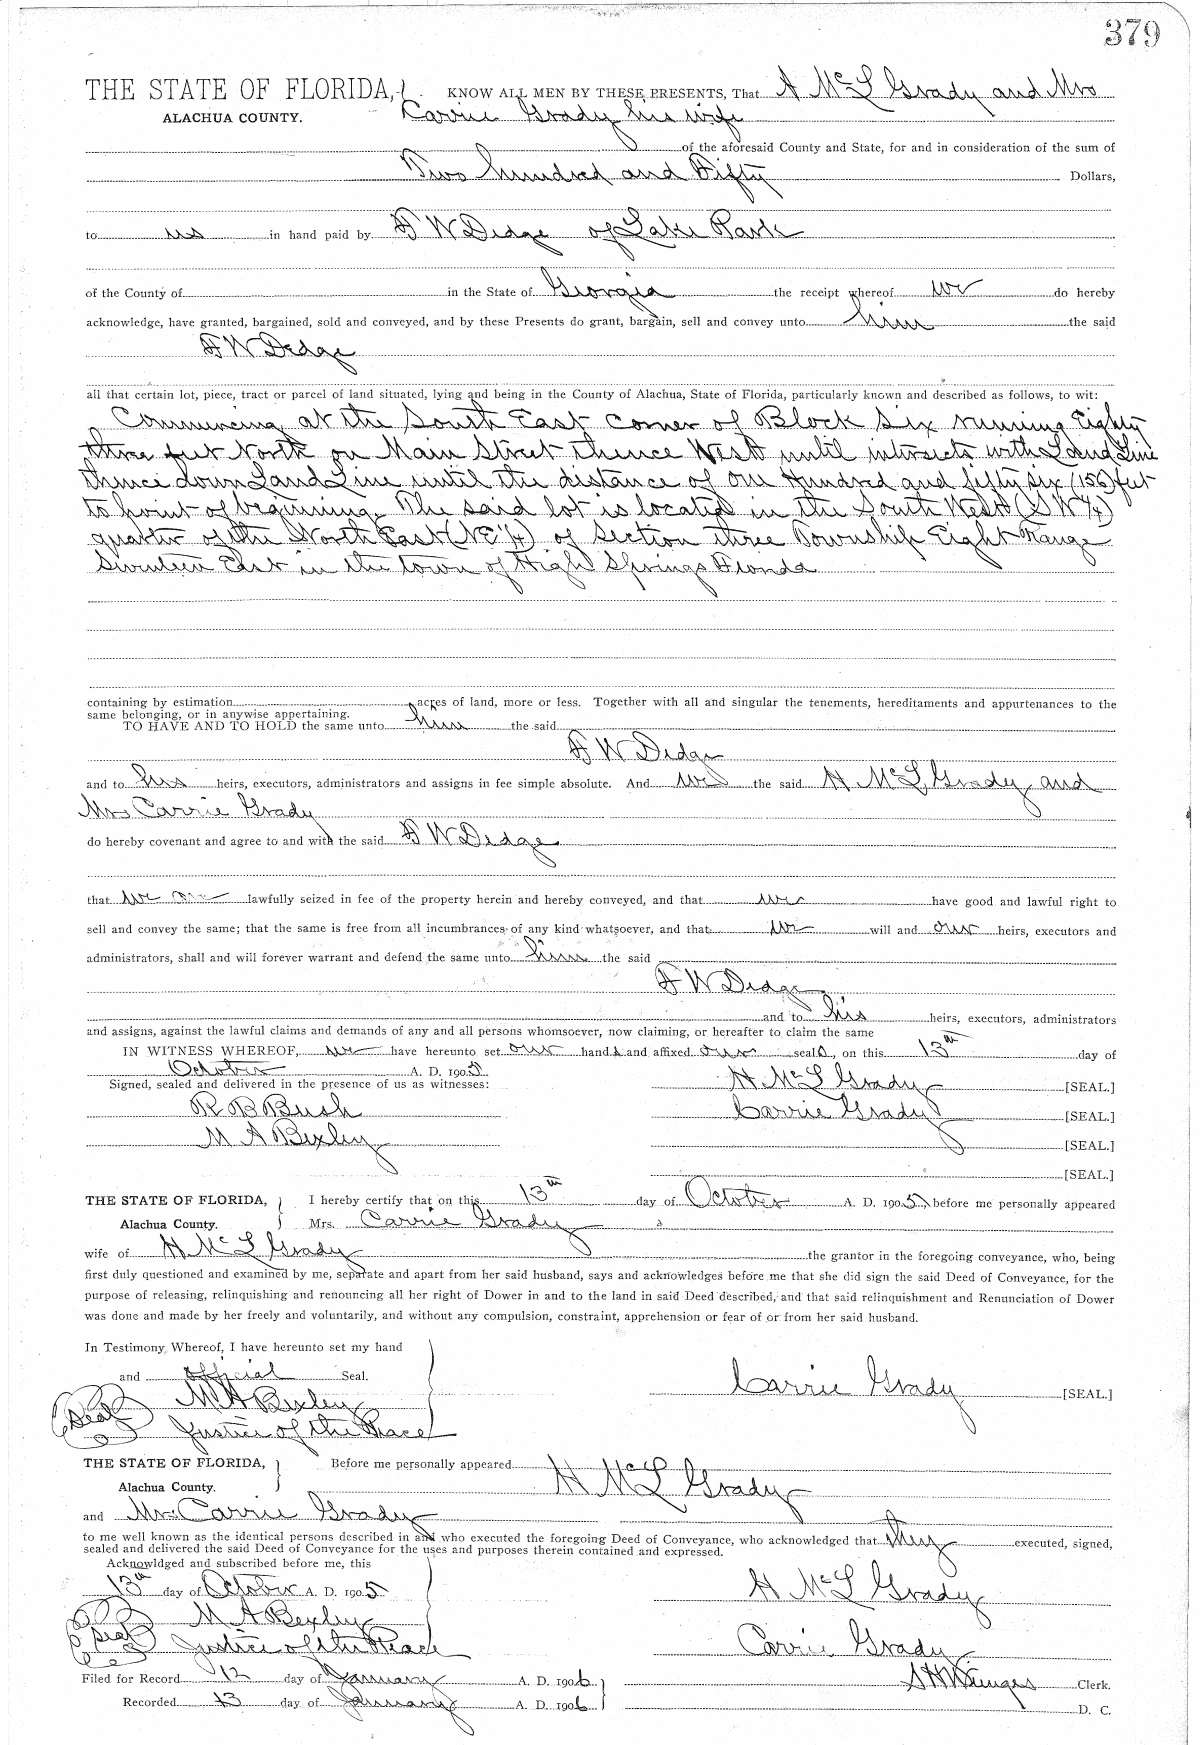 379
THE STATE OF FLORIDA, KNOW ALL MEN BY THESE PRESENTS, That H McL Grady and Mrs
ALACHUA COUNTY. Carrie Grady his wife
of the aforesaid County and State, for and in consideration of the sum of
Two hundred and Fifty Dollars,
to us in hand paid by F W Dedge of Lake Park
of the County of in the State of Georgia the receipt whereof we do hereby
acknowledge, have granted, bargained, sold and conveyed, and by these Presents do grant, bargain, sell and convey unto him the said
F W Dedge
all that certain lot, piece, tract or parcel of land situated, lying and being in the County of Alachua, State of Florida, particularly known and described as follows, to wit:
Commencing at the South East corner of Block Six running Eighty
three feet North on Main Street thence West until intersects with Land Line
thence down Land Line until the distance of one Hundred and fifty six (156) feet
to point of beginning. The said lot is located in the South West (SW 1/4)
quarter of the North East (NE 1/4) of Section three Township Eight Range
Seventeen East in the town of High Springs Florida
containing by estimation acres of land, more or less. Together with all and singular the tenements, hereditaments and appurtenances to the
same belonging, or in anywise appertaining.
TO HAVE AND TO HOLD the same unto him the said
F W Dedge
and to his heirs, executors, administrators and assigns in fee simple absolute. And we the said H McL Grady and
Mrs Carrie Grady
do hereby covenant and agree to and with the said F W Dedge
that we are lawfully seized in fee of the property herein and hereby conveyed, and that we have good and lawful right to
sell and convey the same; that the same is free from all incumbrances of any kind whatsoever, and that we will and our heirs, executors and
administrators, shall and will forever warrant and defend the same unto him the said
F W Dedge
and to his heirs, executors, administrators
and assigns, against the lawful claims and demands of any and all persons whomsoever, now claiming, or hereafter to claim the same
IN WITNESS WHEREOF, we have hereunto set our hands and affixed our seals, on this 13th day of
October A. D. 1905.
Signed, sealed and delivered in the presence of us as witnesses: H McL Grady [SEAL.]
R B Bush Carrie Grady [SEAL.]
M A Bexley [SEAL.]
[SEAL.]
THE STATE OF FLORIDA, I hereby certify that on this 13th day of October A. D. 1905, before me personally appeared
Alachua County. Mrs. Carrie Grady
wife of H McL Grady the grantor in the foregoing conveyance, who, being
first duly questioned and examined by me, separate and apart from her said husband, says and acknowledges before me that she did sign the said Deed of Conveyance, for the
purpose of releasing, relinquishing and renouncing all her right of Dower in and to the land in said Deed described, and that said relinquishment and Renunciation of Dower
was done and made by her freely and voluntarily, and without any compulsion, constraint, apprehension or fear of or from her said husband.
In Testimony Whereof, I have hereunto set my hand
and official Seal.
M A Bexley Carrie Grady [SEAL.]
Seal Justice of the Peace
THE STATE OF FLORIDA, Before me personally appeared H McL Grady
Alachua County.
and Mrs Carrie Grady
to me well known as the identical persons described in and who executed the foregoing Deed of Conveyance, who acknowledged that they executed, signed,
sealed and delivered the said Deed of Conveyance for the uses and purposes therein contained and expressed.
Acknowldged and subscribed before me, this
13th day of October A. D. 1905 H McL Grady
M A Bexley
Seal Justice of the Peace Carrie Grady
Filed for Record 12 day of January A. D. 1906 Clerk.
Recorded 13 day of January A. D. 1906 D. C.